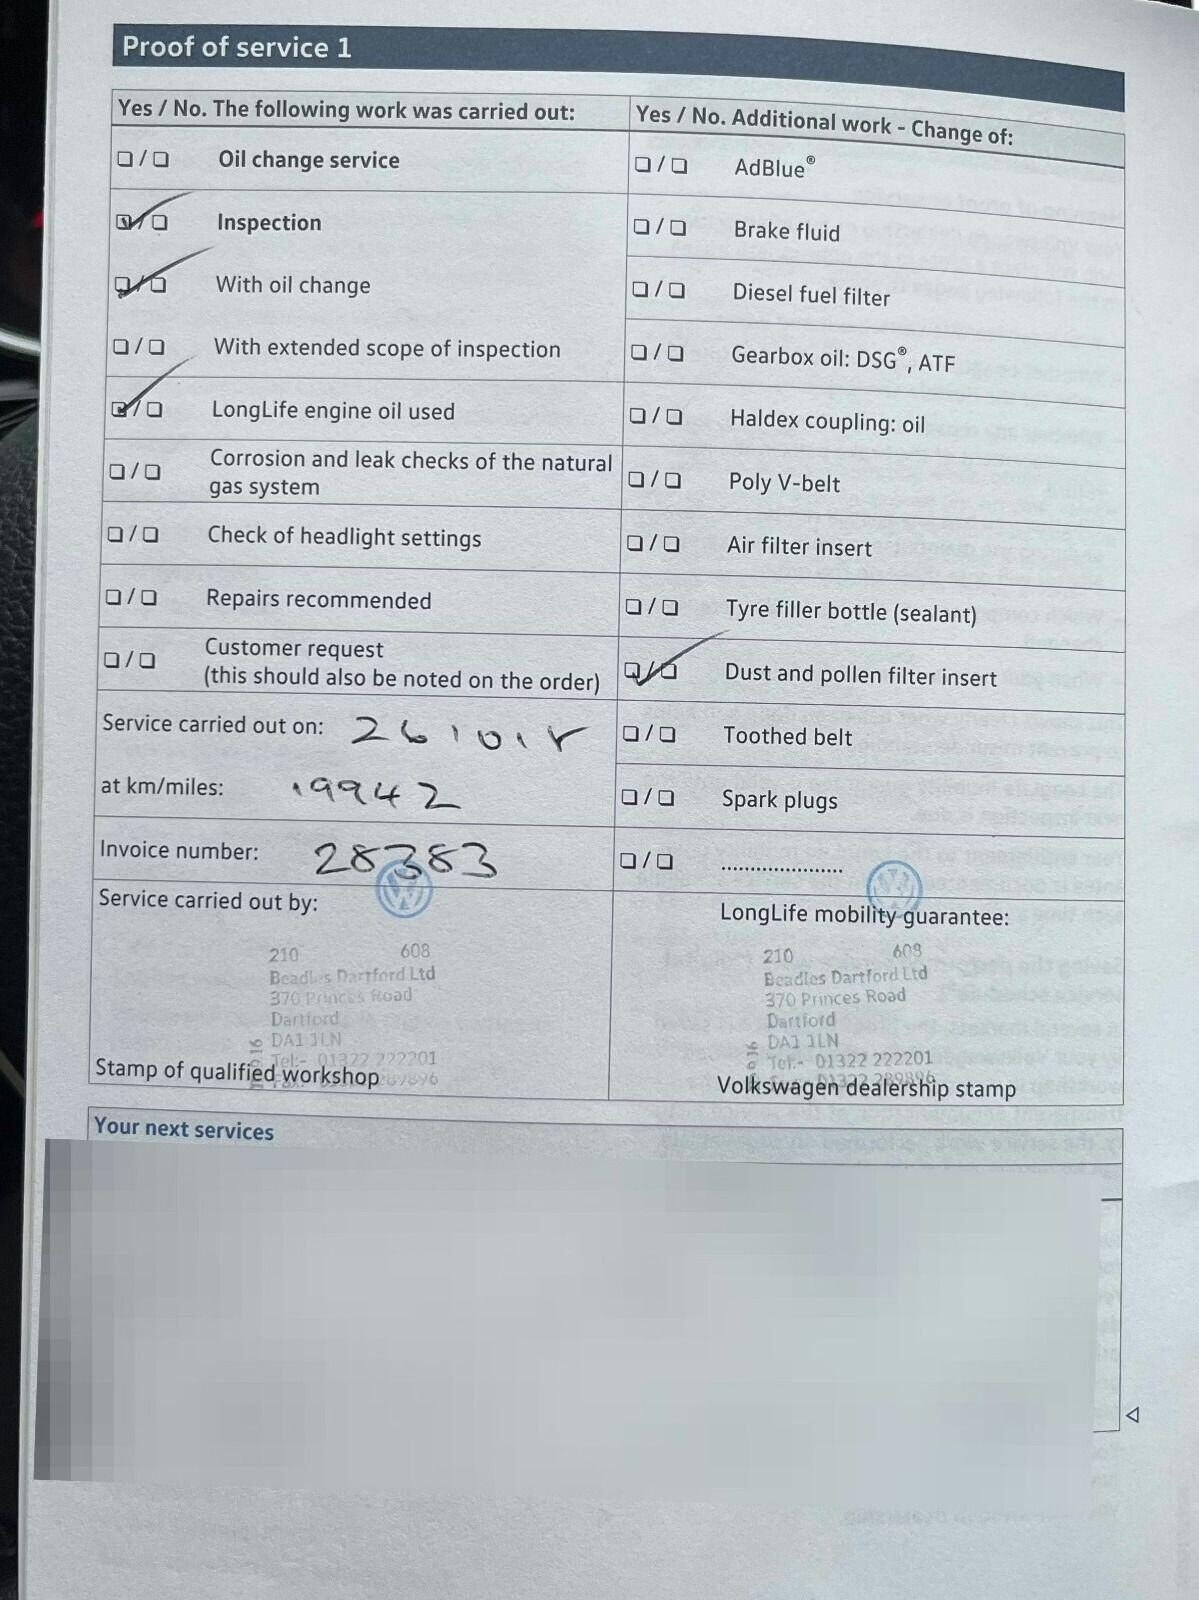 Proof of service 1
Yes / No. The following work was carried out:
❏ / ❏ Oil change service
❏ / ❏ Inspection
❏ / ❏ With oil change
❏ / ❏ With extended scope of inspection
❏ / ❏ LongLife engine oil used
❏ / ❏ Corrosion and leak checks of the natural
gas system
❏ / ❏ Check of headlight settings
❏ / ❏ Repairs recommended
❏ / ❏ Customer request
(this should also be noted on the order)
Service carried out on:
at km/miles: 19942
Invoice number: 28383
Service carried out by:
210 608
Beadles Dartford Ltd
370 Princes Road
Dartford
DA1 1LN
Tel:- 01322 222201
Stamp of qualified workshop
Yes / No. Additional work - Change of:
❏ / ❏ AdBlue®
❏ / ❏ Brake fluid
❏ / ❏ Diesel fuel filter
❏ / ❏ Gearbox oil: DSG®, ATF
❏ / ❏ Haldex coupling: oil
❏ / ❏ Poly V-belt
❏ / ❏ Air filter insert
❏ / ❏ Tyre filler bottle (sealant)
❏ / ❏ Dust and pollen filter insert
❏ / ❏ Toothed belt
❏ / ❏ Spark plugs
❏ / ❏ .....................
LongLife mobility guarantee:
210 608
Beadles Dartford Ltd
370 Princes Road
Dartford
DA1 1LN
Tel:- 01322 222201
Volkswagen dealership stamp
Your next services